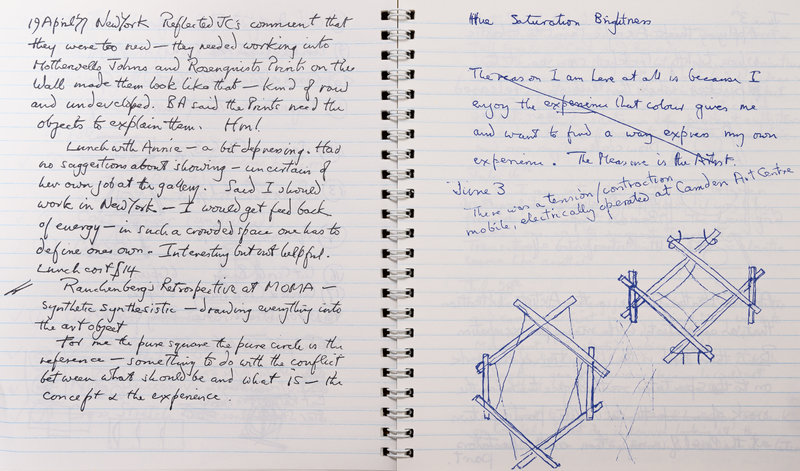 19 April 77 New York Reflected JC's comment that
they were too new – they needed working into
Motherwells Johns and Rosenquists Prints on the
Wall made them look like that – kind of raw
and undeveloped. BA said the Prints need the
objects to explain them. Hm!
Lunch with Annie – a bit depressing. Had
no suggestions about showing – uncertain of
her own job at the gallery. Said I should
work in New York – I would get feed back
of energy – in such a crowded space one has to
define ones own. Interesting but not helpful.
Lunch cost $14
Rauchenberg's Retrospective at MOMA –
synthetic synthesistic – drawing everything into
the art object
For me the pure square the pure circle is the
reference – something to do with the conflict
between what should be and what is – the
concept & the experience.
Hue Saturation Brightness
The reason I am here at all is because I
enjoy the experience that colour gives me
and want to find a way express my own
experience. The Measure is the Artist.
June 3
There was a tension/contraction
mobile, electrically operated at Camden Art Centre